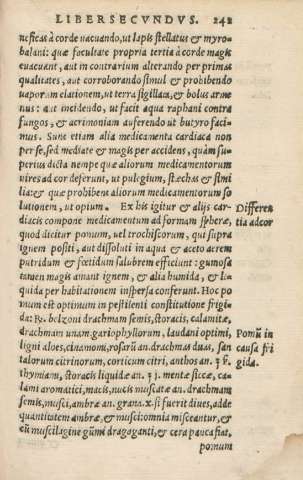 LIBER SECVNDVS. 242
neficas à corde euacuando, ut lapis stellatus & myro-
balani: quæ facultate propria tertia à corde magis
euacuent, aut in contrarium alterando per primas
qualitates, aut corroborando simul & prohibendo
uaporum elationem, ut terra sigillata, & bolus arme
nus: aut incidendo, ut facit aqua raphani contra
fungos, & acrimoniam auferendo ut butyro faci-
mus. Sunt etiam alia medicamenta cardiaca non
per se, sed mediate & magis per accidens, quàm su-
perius dicta nempe quæ aliorum medicamentorum
uires ad cor deferunt, ut pulegium, stœchas & simi
lia: & quæ prohibent aliorum medicamentorum so
lutionem, ut opium. Ex his igitur & alijs car-
diacis compone medicamentum ad formam sphæræ,
quod dicitur pomum, uel trochiscorum, qui supra
ignem positi, aut dissoluti in aqua & aceto aërem
putridum & fœtidum salubrem efficiunt: gumosa
tamen magis amant ignem, & alia humida, & li-
quida per habitationem inspersa conferunt. Hoc po
mum est optimum in pestilenti constitutione frigi-
da: ℞. belzoni drachmam semis, storacis, calamitæ,
drachmam unam. gariophyllorum, laudani optimi,
ligni aloes, cinamomi, rosarū an. drachmas duas, san
talorum citrinorum, corticum citri, anthos an.
thymiam, storacis liquidæ an. mentæ siccæ, ca-
lami aromatici, macis, nucis muscatæ an. drachmam
semis, musci, ambræ an. grana. x. si fuerit diues, adde
quantitatem ambræ, & musci: omnia misceantur, &
cū muscilagine gūmi dragaganti, & cera pauca fiat,
pomum
Differen
tia ad cor
Pomū in
causa fri
gida.